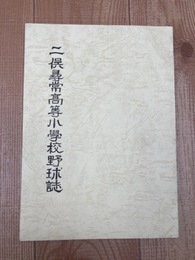 二俣尋常高等小學校野球誌